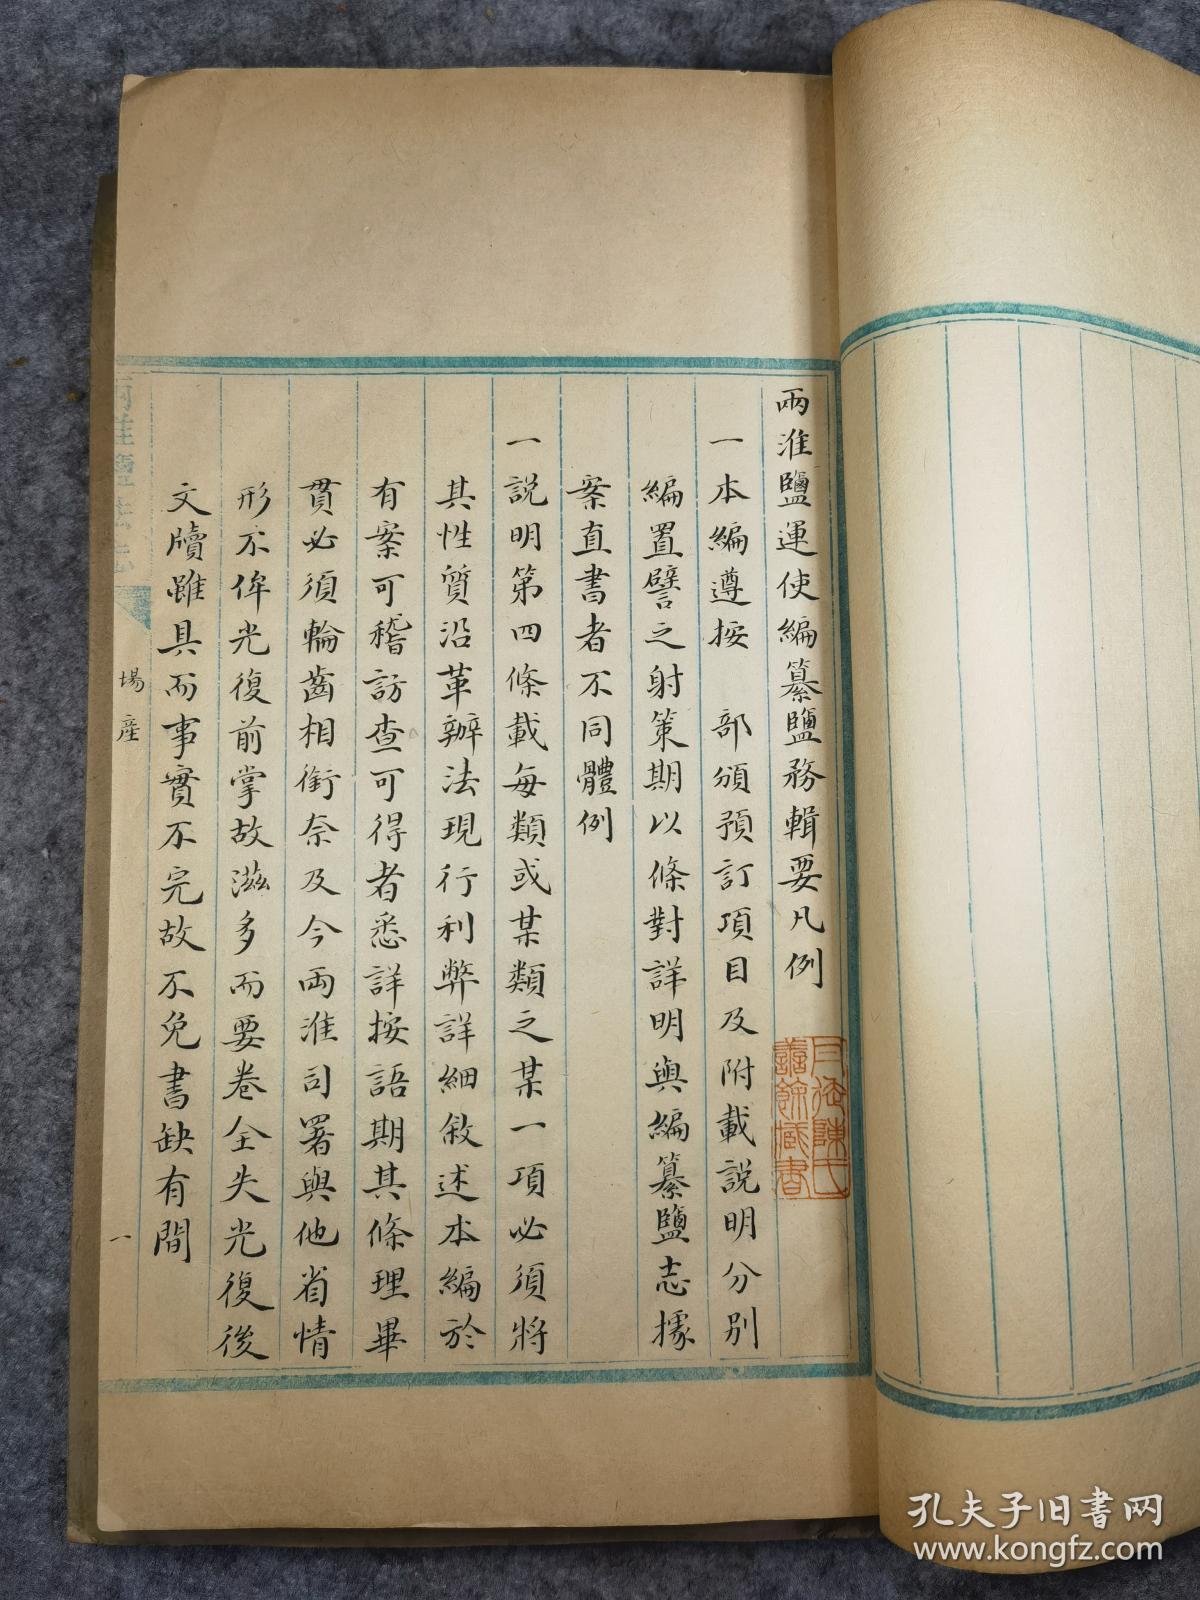 兩淮鹽運使編纂鹽務輯要凡例
一本編遵按　部頒預訂項目及附載說明分別
編置譬之射策期以條對詳明與編纂鹽志據
案直書者不同體例
一說明第四條載每類或某類之某一項必須將
其性質沿革辦法現行利弊詳細敘述本編於
有案可稽訪查可得者悉詳按語期其條理畢
貫必須輪齒相銜奈及今兩淮司署與他省情
形不侔光復前掌故滋多而要卷全失光復後
文牘雖具而事實不完故不免書缺有間
兩淮鹽法志
場產
一
陳氏
藏書
孔夫子旧书网
www.kongfz.com